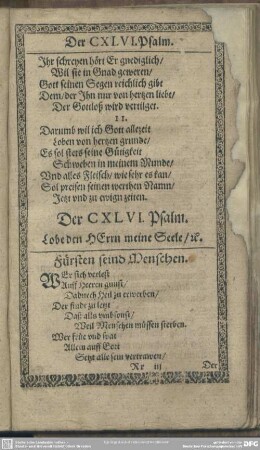 Der CXLVI. Psalm.
Ihr schreyen hört Er gnediglich/
Wil sie in Gnad geweren/
Gott seinen Segen reichlich gibt
Dem/der Ihn nur von hertzen liebt/
Der Gottloß wird vertilget.
11.
Darumb wil ich Gott allezeit
Loben von hertzen grunde/
Es sol stets seine Gütigkeit
Schweben in meinem Munde/
Vnd alles Fleisch/wie sehr es kan/
Sol preisen seinen werthen Namn/
Jetzt vnd zu ewign zeiten.
Der CXLVI. Psalm.
Lobe den HErrn meine Seele/ꝛc.
Fürsten seind Menschen.
WEr sich verlest
Auff Herren gunst/
Dadurch Heil zu erwerben/
Der findt zu letzt
Daß alls vmbsonst/
Weil Menschen müssen sterben.
Wer früe vnd spat
Allein auff Gott
Setzt alle sein vertrawen/
Rr iij
Der